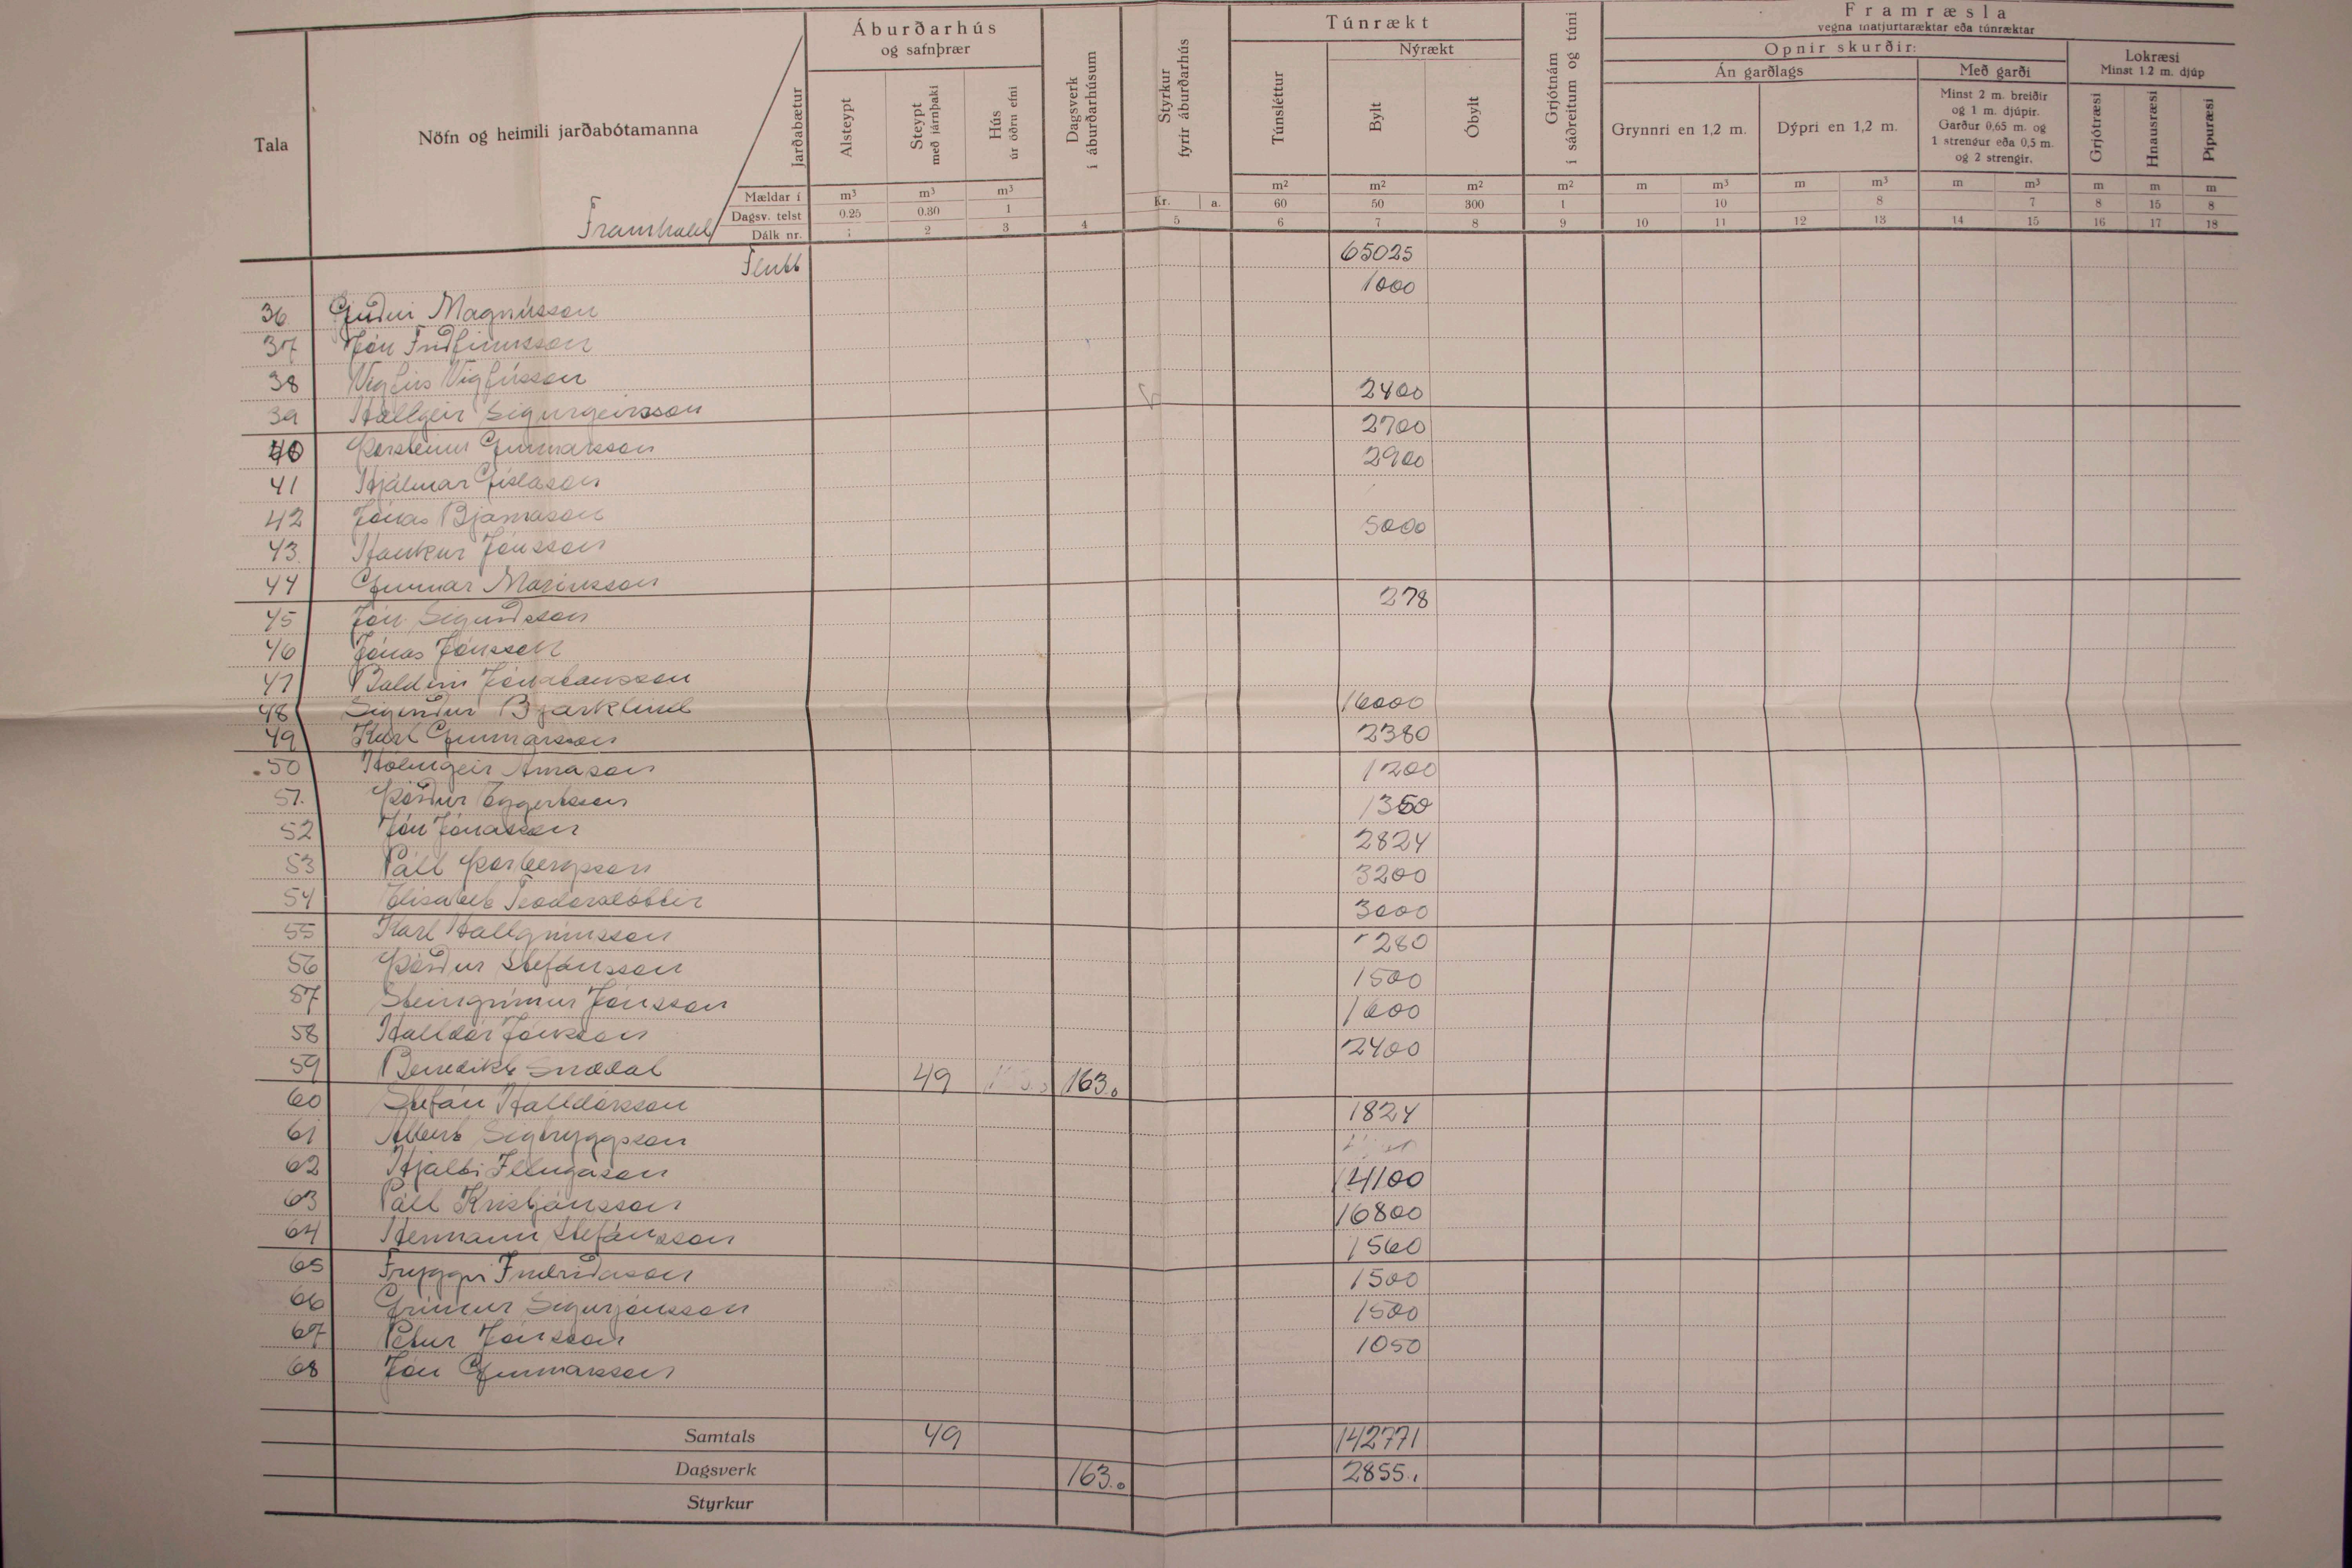 Tala
Nöfn og heimili jarðabótamanna
Framhald
Jarðabætur
Mældar í
Dagsv. telst
Dálk nr.
Áburðarhús
og safnþrær
Alsteypt
Steypt
með járnþaki
Hús
úr öðru efni
Dagsverk
í áburðarhúsum
Styrkur
fyrir áburðarhús
Túnrækt
Túnsléttur
Nýrækt
Bylt
Óbylt
Grjótnám
í sáðreitum og túni
Framræsla
vegna matjurtaræktar eða túnræktar
Opnir skurðir:
Án garðlags
Grynnri en 1,2 m.
Dýpri en 1,2 m.
Með garði
Minst 2 m. breiðir
og 1 m. djúpir.
Garður 0,65 m. og
1 strengur eða 0,5 m.
og 2 strengir.
Lokræsi
Minst 1.2 m. djúp
Grjótræsi
Hnausræsi
Pípuræsi
m³ m³ m³ Kr. a. m² m² m² m² m m³ m m³ m m³ m m m
0.25 0.30 1 60 50 300 1 10 8 7 8 15 8
1 2 3 4 5 6 7 8 9 10 11 12 13 14 15 16 17 18
Flutt 65025
36 Guðni Magnússon 1000
37 Jón Friðfinnsson
38 Vigfús Vigfússon
39 Hallgeir Sigurgeirsson 2400
40 Þorsteinn Gunnarsson 2700
41 Hjálmar Gíslason 2900
42 Jónas Bjarnason
43 Haukur Jónsson 5000
44 Gunnar Maríusson
45 Jón Sigurdsson 278
46 Jónas Jónsson
47 Baldvin Jónatansson
48 Sigurdur Bjarklind 16000
49 Karl Gunnarsson 2380
50 Hólmgeir Árnason 1200
51. Þórdur Eggertsson 1350
52 Jón Jónasson 2824
53 Páll Þorbergsson 3200
54 Elísabet Teodorsdóttir 3000
55 Karl Hallgrímsson 280
56 Þórdur Stefánsson 1500
57 Steingrímur Jónsson 1600
58 Halldór Jónsson 2400
59 Benedikt Snædal 49 163.0
60 Stefán Halldórsson 1824
61 Albert Sigtryggsson
62 Hjalti Illugason 14100
63 Páll Kristjánsson 16800
64 Hermann Stefánsson 1560
65 Tryggvi Indridason 1500
66 Grímur Sigurjónsson 1500
67 Pétur Jónsson 1050
68 Jón Gunnarsson
Samtals 49 142771
Dagsverk 163.0 2855.
Styrkur